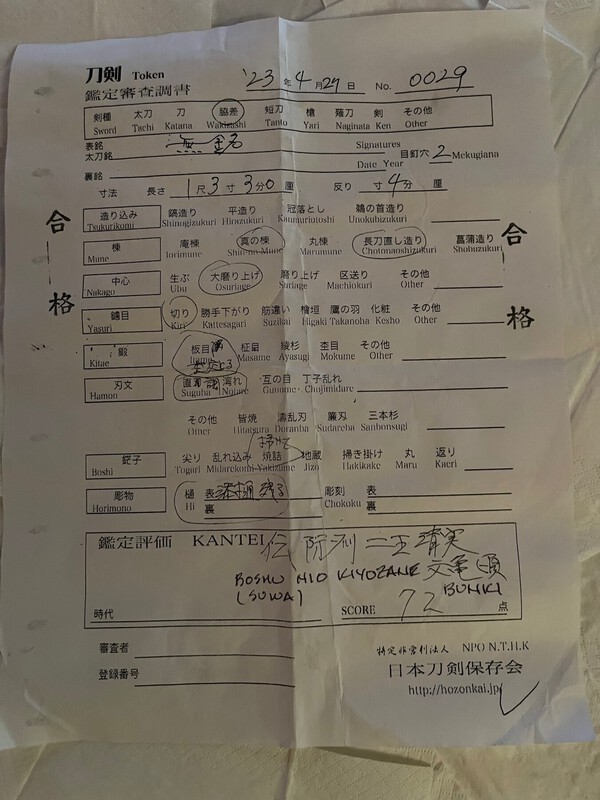 刀剣 Token '23年4月29日 No. 0029
鑑定審査調書
剣種 太刀 刀 脇差 短刀 槍 薙刀 剣 その他
Sword Tachi Katana Wakizashi Tanto Yari Naginata Ken Other
表銘 無銘 Signatures 目釘穴 2 Mekugiana
太刀銘 Date Year
裏銘
寸法 長さ 1尺3寸3分0厘 反り 寸4分 厘
造り込み 鎬造り 平造り 冠落とし 鵜の首造り
Tsukurikomi Shinogizukuri Hirazukuri Kanmuriotoshi Unokubizukuri
棟 庵棟 真の棟 丸棟 長刀直し造り 菖蒲造り
Mune Iorimune Shin-no-Mune Marumune Chotonaoshizukuri Shobuzukuri
中心 生ぶ 大磨り上げ 磨り上げ 区送り その他
Nakago Ubu Osuriage Suriage Machiokuri Other
鑢目 切り 勝手下がり 筋違い 檜垣 鷹の羽 化粧 その他
Yasuri Kiri Kattesagari Suzikai Higaki Takanoha Kesho Other
鍛 板目 柾目 綾杉 杢目 その他
Kitae Itame Masame Ayasugi Mokume Other
刃文 直刃 湾れ 互の目 丁子乱れ
Hamon Suguha Notare Gunome Chojimidare
その他 皆焼 濤乱刃 簾刃 三本杉
Other Hitatsura Doranba Sudareba Sanbonsugi
掃かけ
鋩子 尖り 乱れ込み 焼詰 地蔵 掃き掛け 丸 返り
Boshi Togari Midarekomi Yakizume Jizo Hakikake Maru Kaeri
彫物 樋 表 彫刻 表
Horimono Hi 裏 Chokoku 裏
合格
合格
鑑定評価 KANTEI 伝 防州 二王清実
BOSHU NIO KIYOZANE 文亀頃
(SUWA) BUNKI
時代 SCORE 72 点
審査者 特定非営利法人 NPO N.T.H.K
登録番号 日本刀剣保存会
http://hozonkai.jp/